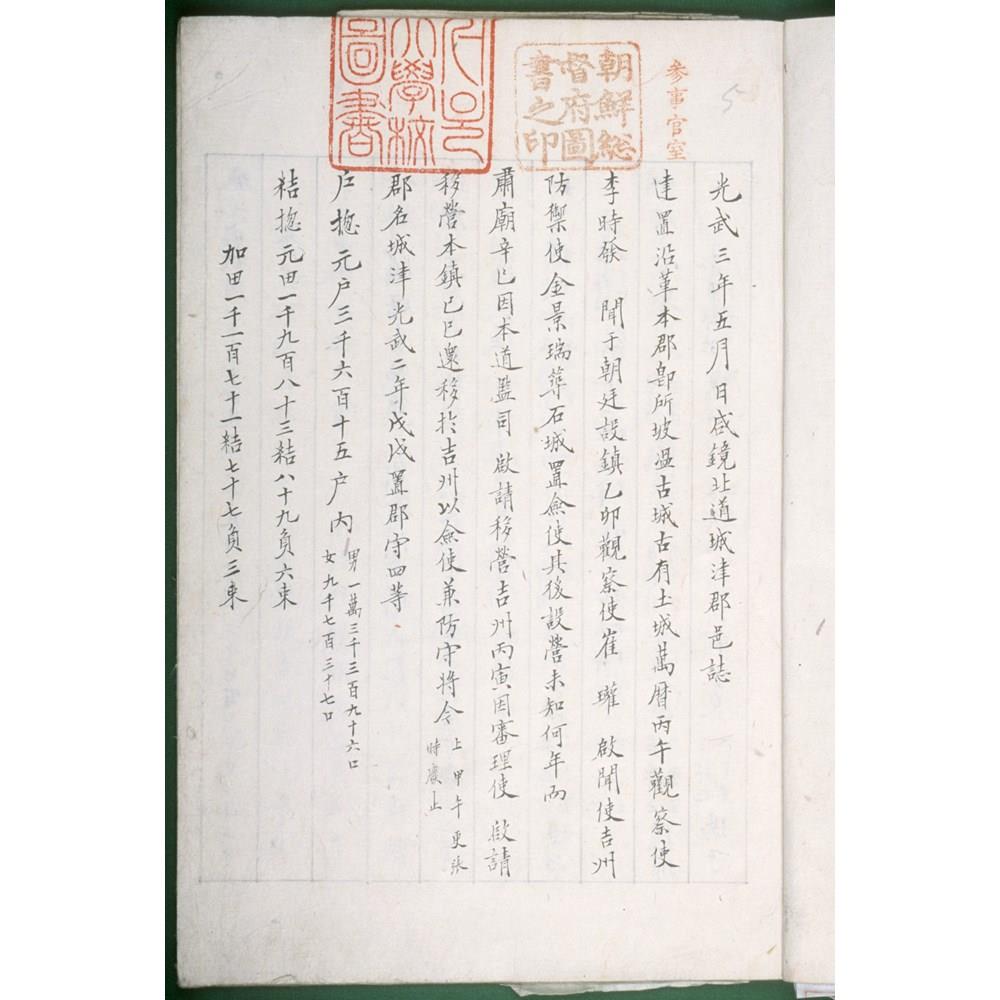 光武三年五月日咸鏡北道城津郡邑誌
建置沿革本郡卽所坡溫古城古有土城萬曆丙午觀察使
李時發 聞于朝廷設鎮乙卯觀察使崔 瓘 啟聞使吉州
防禦使金景瑞築石城置僉使其後設營未知何年而
肅廟辛巳因本道監司 啟請移營吉州丙寅因審理使 啟請
移營本鎮己巳還移於吉州以僉使兼防守將今
上甲午更張
時廢止
郡名城津光武二年戊戌置郡守四等
戶摠 元戶三千六百十五戶內
男一萬三千三百九十六口
女九千七百三十七口
結摠 元田一千九百八十三結八十九負六束
加田一千一百七十一結七十七負三束
參事官室
朝鮮総
督府圖
書之印
大學校
圖書
5